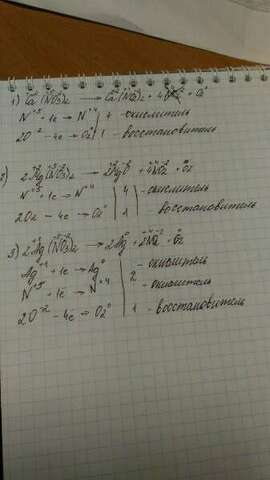 1) Ca(NO3)2 → Ca(NO2)2 + O2
N+5 + 1e → N+4 | 4 - окислитель
2O-2 - 4e → O2 | 1 - восстановитель
2) 2Hg(NO3)2 → 2HgO + 4NO2 + O2
N+5 + 1e → N+4 | 4 - окислитель
2O-2 - 4e → O2 | 1 восстановитель
3) 2Ag(NO3)2 → 2Ag + 2NO2 + O2
Ag+1 + 1e → Ag0 | - окислитель
N+5 + 1e → N+4 | 2 - окислитель
2O-2 - 4e → O20 | 1 - восстановитель